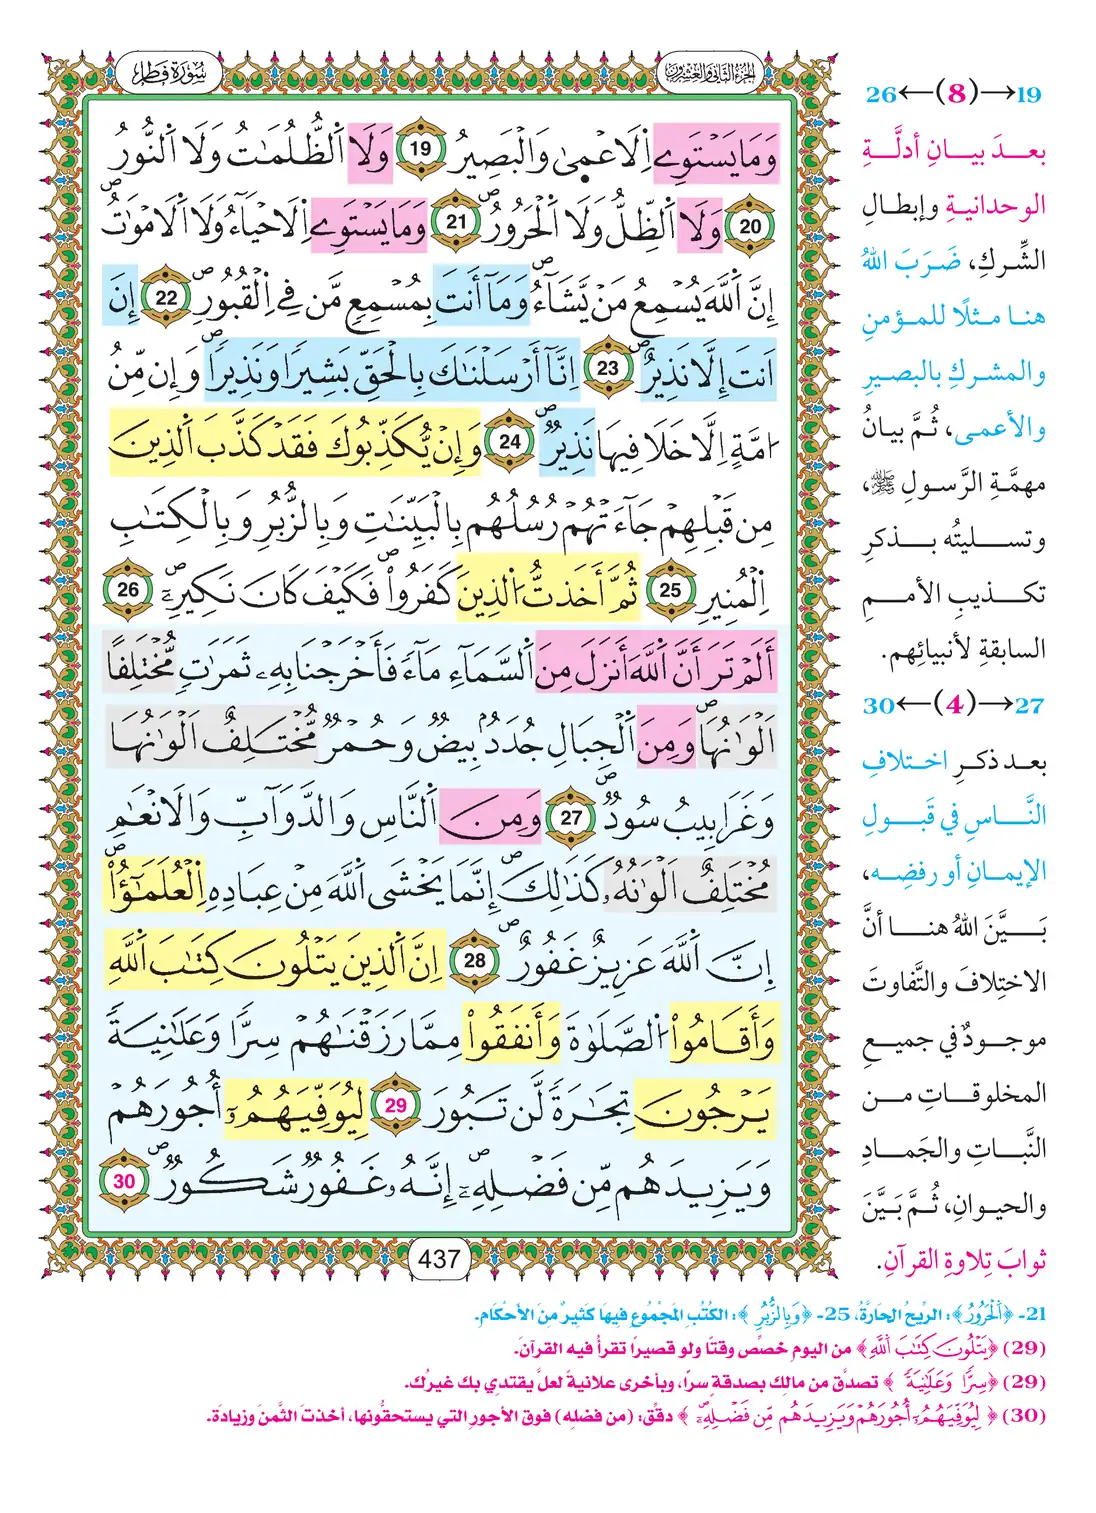 الجزء الثاني والعشرون
سُورَةُ فَاطِرٍ
وَمَا يَسْتَوِے اِ۬لَاعْم۪ىٰ وَالْبَصِيرُ 19 وَلَا اَ۬لظُّلُمَٰتُ وَلَا اَ۬لنُّورُ
20 وَلَا اَ۬لظِّلُّ وَلَا اَ۬لْحَرُورُۖ 21 وَمَا يَسْتَوِے اِ۬لَاحْيَآءُ وَلَا اَ۬لَامْوَٰتُۖ
إِنَّ اَ۬للَّهَ يُسْمِعُ مَنْ يَّشَآءُۖ وَمَآ أَنتَ بِمُسْمِعٖ مَّن فِے اِ۬لْقُبُورِۖ 22 إِنَ
اَنتَ إِلَّا نَذِيرٌۖ 23 اِنَّآ أَرْسَلْنَٰكَ بِالْحَقِّ بَشِيراٗ وَنَذِيراٗۖ وَإِن مِّنُ
ا۟مَّةٍ اِلَّا خَلَا فِيهَا نَذِيرٌۖ 24 وَإِنْ يُّكَذِّبُوكَ فَقَدْ كَذَّبَ اَ۬لذِينَ
مِن قَبْلِهِمْ جَآءَتْهُمْ رُسُلُهُم بِالْبَيِّنَٰتِ وَبِالزُّبُرِ وَبِالْكِتَٰبِ
اِ۬لْمُنِيرِ 25 ثُمَّ أَخَذتُّ اُ۬لذِينَ كَفَرُواْۖ فَكَيْفَ كَانَ نَكِيرِۦۖ 26
أَلَمْ تَرَ أَنَّ اَ۬للَّهَ أَنزَلَ مِنَ اَ۬لسَّمَآءِ مَآءٗ فَأَخْرَجْنَا بِهِۦ ثَمَرَٰتٖ مُّخْتَلِفاً
اَلْوَٰنُهَاۖ وَمِنَ اَ۬لْجِبَالِ جُدَدُۢ بِيضٞ وَحُمْرٞ مُّخْتَلِفٌ اَلْوَٰنُهَا
وَغَرَابِيبُ سُودٞۖ 27 وَمِنَ اَ۬لنَّاسِ وَالدَّوَآبِّ وَالَانْعَٰمِ
مُخْتَلِفٌ اَلْوَٰنُهُۥ كَذَٰلِكَۖ إِنَّمَا يَخْشَى اَ۬للَّهَ مِنْ عِبَادِهِ اِ۬لْعُلَمَٰٓؤُاْۖ
إِنَّ اَ۬للَّهَ عَزِيزٌ غَفُورٌۖ 28 اِنَّ اَ۬لذِينَ يَتْلُونَ كِتَٰبَ اَ۬للَّهِ
وَأَقَامُواْ اُ۬لصَّلَوٰةَ وَأَنفَقُواْ مِمَّا رَزَقْنَٰهُمْ سِرّاٗ وَعَلَٰنِيَةٗ
يَرْجُونَ تِجَٰرَةٗ لَّن تَبُورَ 29 لِيُوَفِّيَهُمُۥٓ أُجُورَهُمْ
وَيَزِيدَهُم مِّن فَضْلِهِۦٓۖ إِنَّهُۥ غَفُورٞ شَكُورٞۖ 30
437
26←(8)→19
بعدَ بيانِ أدلَّةِ
الوحدانيةِ وإبطالِ
الشِّركِ، ضَرَبَ اللهُ
هنا مثلًا للمؤمنِ
والمشركِ بالبصيرِ
والأعمى، ثُمَّ بيانُ
مهمَّةِ الرَّسولِ ﷺ،
وتسليتُه بذكرِ
تكذيبِ الأممِ
السابقةِ لأنبيائِهم.
30←(4)→27
بعد ذكرِ اختلافِ
النَّاسِ في قَبولِ
الإيمانِ أو رفضِه،
بَيَّنَ اللهُ هنا أنَّ
الاختِلافَ والتَّفاوتَ
موجودٌ في جميعِ
المخلوقاتِ من
النَّباتِ والجَمادِ
والحيوانِ، ثُمَّ بَيَّنَ
ثوابَ تِلاوةِ القرآنِ.
21- ﴿اَ۬لْحَرُورُ﴾: الرِّيحُ الحَارَّةُ، 25- ﴿وَبِالزُّبُرِ﴾: الكُتُبِ المَجْمُوعِ فِيهَا كَثِيرٌ مِنَ الأَحْكَامِ.
(29) ﴿يَتْلُونَ كِتَٰبَ اَ۬للَّهِ﴾ من اليوم خصِّص وقتًا ولو قصيرًا تقرأُ فيه القرآنَ.
(29) ﴿سِرّاٗ وَعَلَٰنِيَةٗ﴾ تصدَّق من مالِك بصدقةٍ سرًا، وبأخرى علانيةً لعلَّ يقتدِي بك غيرُك.
(30) ﴿لِيُوَفِّيَهُمُۥٓ أُجُورَهُمْ وَيَزِيدَهُم مِّن فَضْلِهِۦٓۖ﴾ دقِّق: (من فضلِه) فوق الأجورِ التي يستحقُّونها، أخذتَ الثَّمنَ وزيادة.